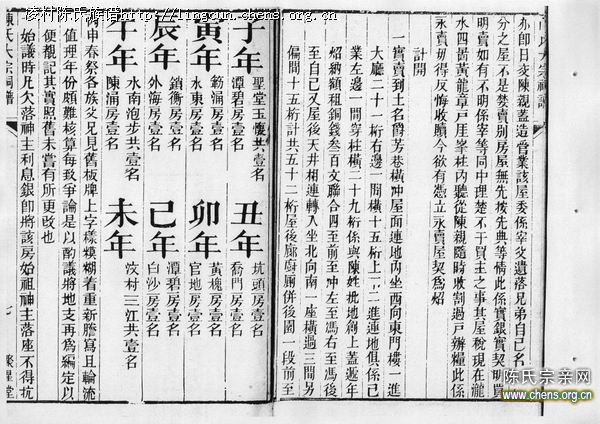 陳氏大宗祠譜
凌村陈氏族谱 - http://lingcun.chens.org.cn
亦即日交陳親蓋造管業該屋委係宰父遺落兄弟自己名
分之屋不是焚賣別房屋無先按先典等情此係實銀實契明買
明賣如有不明係宰等同中理楚不干買主之事其屋稅現在龍
水四啚黃龍章戶厓峯柱內聽從陳親隨時收割過戶辦糧此係
永賣毋得反悔收贖今欲有憑立永賣屋契為炤
計開
一實賣到土名爵芳巷橫冲屋面連地內坐西向東門樓一進
大廳二十一桁右邊一間橫十五桁上一二進連地俱係己
業左邊一間穿柱橫二十九桁係與陳姓批地創上蓋遞年
炤納鋪租銅錢叁百文聯合四至前至冲左至馮右至馮後
至自己又屋後天井相連轉入坐北向南一座橫過三間另
偏間十五桁計共五十二桁屋後廊廚厠併後園一段前至
子年 聖堂玉懷共壹名 潭碧房壹名
丑年 坑頭房壹名 喬門房壹名
寅年 簕涌房壹名 永東房壹名
卯年 黃槐房壹名 官地房壹名
辰年 鎖衡房壹名 外海房壹名
巳年 潭碧房壹名 白沙房壹名
午年 水南泡步共壹名 陳涌房壹名
未年 汶村三江共壹名
丙申春祭各族父兄見舊板牌上字樣模糊着重新謄寫且輪流
值理年份頗難核算每致爭論是以酌議將地支再為編定以
便覩記其實照舊未嘗有所更改也
始議時凡欠落神主利息銀即將該房始祖神主落座不得抗
七
聚星堂
陈氏宗亲网
www.chens.org.cn